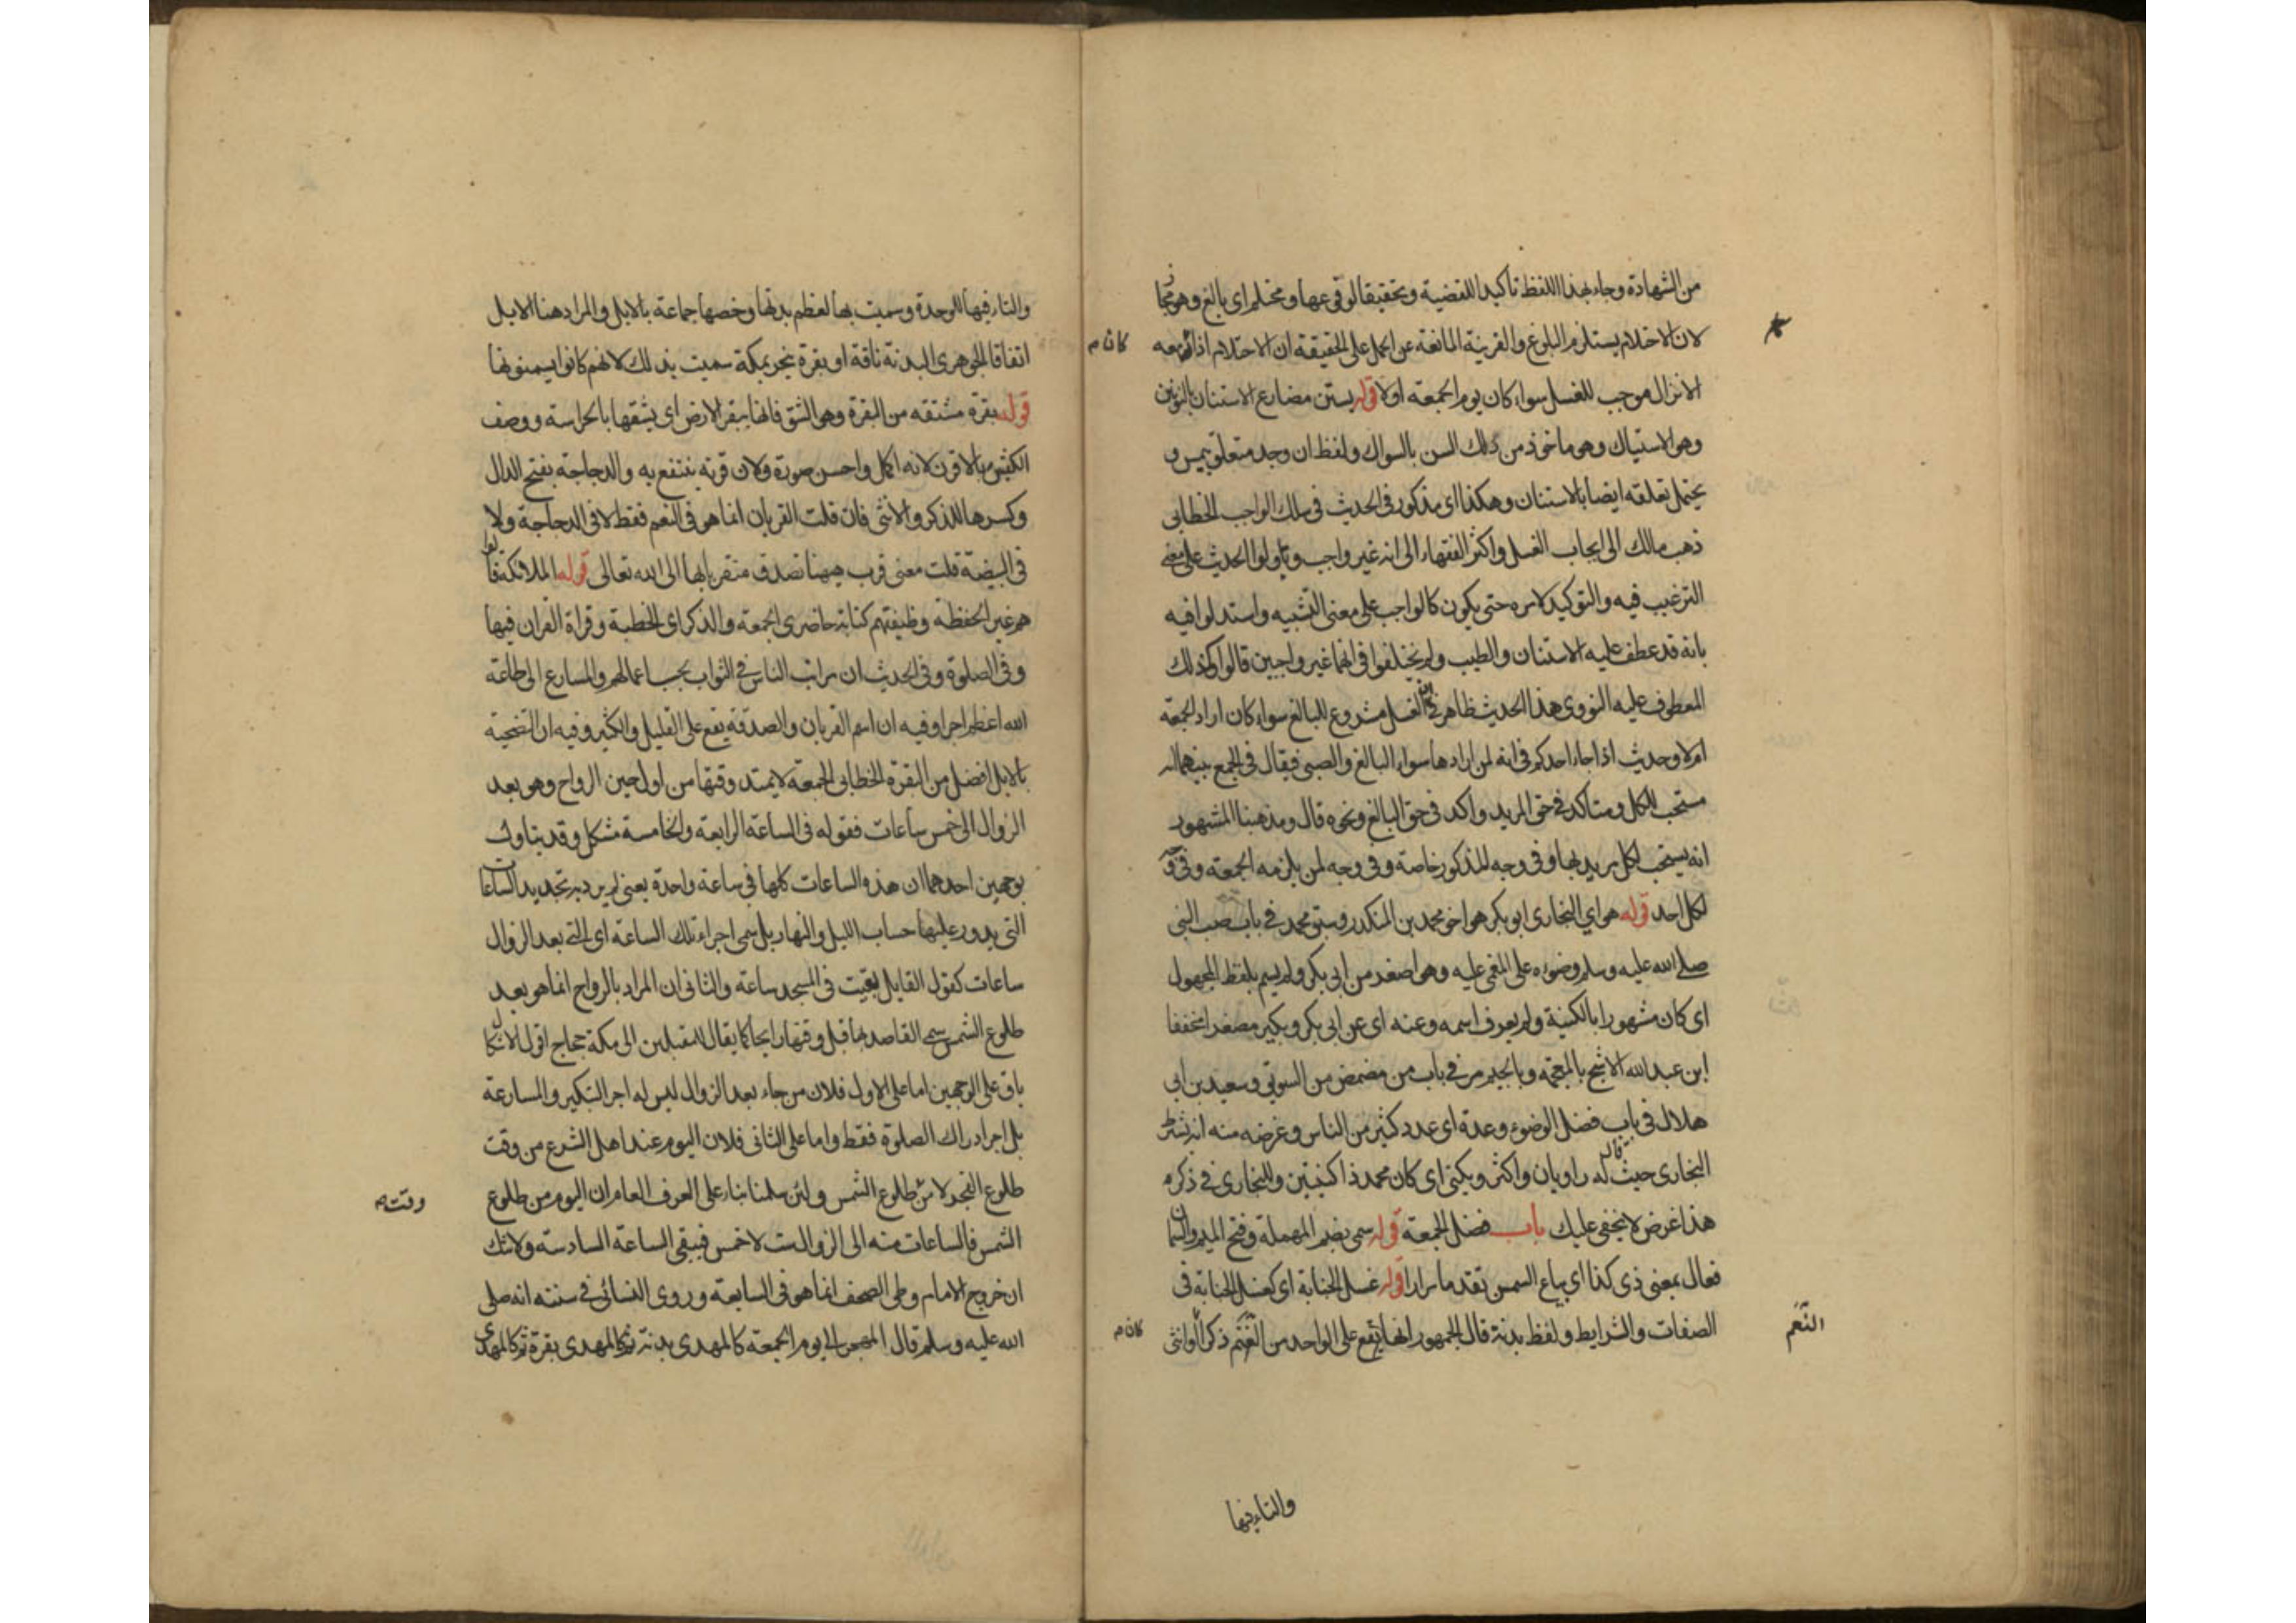 من الشهادة وجاء بهذا اللفظ تاكيدا للقضية وتحقيقا لوقوعها ومحتلم اى بالغ وهو مجاز
لان الاحتلام يستلزم البلوغ والقرينة المانعة عن الحمل على الحقيقة ان الاحتلام اذا كان معه
كان م
الانزال موجب للغسل سواء كان يوم الجمعة اولا قوله يستن مضارع الاستنان بالنونين
وهو الاستياك وهو ماخوذ من ذلك السن بالسواك ولفظ ان وجد متعلق بيمس و
يحتمل تعلقه ايضا بالاستنان وهكذا اى مذكور فى الحديث فى سلك الواجب الخطابى
ذهب مالك الى ايجاب الغسل واكثر الفقهاء الى انه غير واجب وتاولوا الحديث على معنى
الترغيب فيه والتوكيد لامره حتى يكون كالواجب على معنى التشبيه واستدلوا فيه
بانه قد عطف عليه الاستنان والطيب ولم يختلفوا فى انهما غير واجبين قالوا وكذلك
المعطوف عليه النووى هذا الحديث ظاهر فى ان الغسل مشروع للبالغ سواء كان اراد الجمعة
ام لا وحديث اذا جاء احدكم فى انه لمن ارادها سواء البالغ والصبى فيقال فى الجمع بينهما انه
مستحب للكل ومتاكد فى حق المريد واكد فى حق البالغ ونحوه قال ومذهبنا المشهور
انه يستحب لكل مريد لها وفى وجه للذكور خاصة وفى وجه لمن يلزمه الجمعة وفى وجه
لكل احد قوله هو اي البخارى ابو بكر هو اخو محمد بن المنكدر وسبق محمد فى باب صب النبى
صلى الله عليه وسلم وضوءه على المغمى عليه وهو اصغر من ابى بكر ولم يسم بلفظ المجهول
اى كان مشهورا بالكنية ولم يعرف اسمه وعنه اى عن ابى بكر وبكير مصغرا مخففا
ابن عبد الله الاشج بالمعجمة وبالجيم مر فى باب من مضمض من السويق وسعيد بن ابى
هلال فى باب فضل الوضوء وعدة اى عدد كثير من الناس وغرضه منه انه
البخارى حيث قال له راويان واكثر ويكنى اى كان محمد ذا كنيتين وللبخارى فى ذكره
هذا غرض لا يخفى عليك باب فضل الجمعة قوله سمى بضم المهملة وفتح الميم والسمان
فعال بمعنى ذى كذا اى بياع السمن تقدما مرارا قوله غسل الجنابة اى كغسل الجنابة فى
الصفات والشرايط ولفظ بدنة قال الجمهور انها يقع على الواحد من الغنم ذكرا او انثى
النَّعَم
كان م
والتاء فيها
والتاء فيها للوحدة وسميت بها لعظم بدنها وخصها جماعة بالابل والمراد هنا الابل
اتفاقا الجوهرى البدنة ناقة او بقرة ينحر بمكة سميت بذلك لانهم كانوا يسمنونها
قوله بقرة مشتقه من البقرة وهو الشق فانها يبقر الارض اى يشقها بالحراسة ووصف
الكبش بالاقرن لانه اكمل واحسن صورة ولان قرنه ينتفع به والدجاجة بفتح الدال
وكسرها للذكر والانثى فان قلت القربان انما هو فى النعم فقط لا فى الدجاجة ولا
فى البيضة قلت معنى قرب هيهنا تصدق متقربا بها الى الله تعالى قوله الملائكة قالوا
هم غير الحفظة وظيفتهم كتابة حاضرى الجمعة والذكر اى الخطبة وقراة القران فيها
وفى الصلوة وفى الحديث ان مراتب الناس فى الثواب بحسب اعمالهم والمسارع الى طاعة
الله اعظم اجرا وفيه ان اسم القربان والصدقة يقع على القليل والكثير وفيه ان التضحية
بالابل افضل من البقرة الخطابى الجمعة لا يمتد وقتها من اول حين الرواح وهو بعد
الزوال الى خمس ساعات فقوله فى الساعة الرابعة والخامسة مشكل وقد يتاول
بوجهين احدهما ان هذه الساعات كلها فى ساعة واحدة يعنى لم يرد به تحديد الساعات
التى يدور عليها حساب الليل والنهار بل سمى اجزاء تلك الساعة اى التى بعد الزوال
ساعات كقول القايل بقيت فى المسجد ساعة والثانى ان المراد بالرواح انما هو بعد
طلوع الشمس سمى القاصد لها قبل وقتها رايحا كما يقال للمقبلين الى مكة حجاج اقول الاشكال
باق على الوجهين اما على الاول فلان من جاء بعد الزوال ليس له اجر التبكير والمسارعة
بل اجر ادراك الصلوة فقط واما على الثانى فلان اليوم عند اهل الشرع من وقت
طلوع الفجر لا من طلوع الشمس ولئن سلمنا بناء على العرف العام ان اليوم من طلوع
وقت
الشمس فالساعات منه الى الزوال ست لا خمس فيبقى الساعة السادسة ولا شك
ان خروج الامام وطى الصحف انما هو فى السابعة وروى النسائى فى سننه انه صلى
الله عليه وسلم قال المهجر الى يوم الجمعة كالمهدى بدنة ثم كالمهدى بقرة ثم كالمهدى